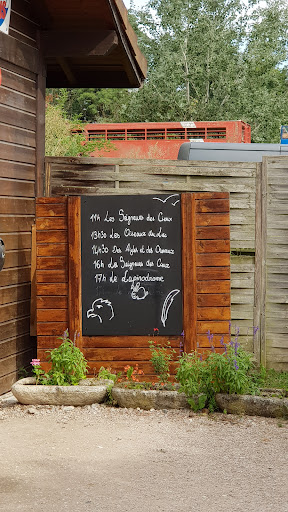 11H Les Seigneurs des Cieux
13H30 Les Oiseaux du Lac
14H30 Des Ailes et des Oiseaux
16H Les Seigneurs des Cieux
17H Le Lapinodrome